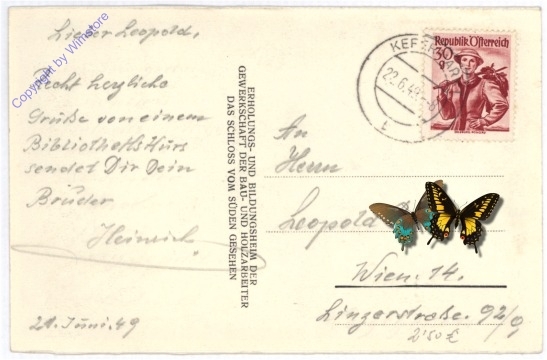 Lieber Leopold,
Recht herzliche
Grüße von einem
Bibliothekskurs
sendet Dir Dein
Bruder
Heinrich
21. Juni 49
ERHOLUNGS- UND BILDUNGSHEIM DER
GEWERKSCHAFT DER BAU- UND HOLZARBEITER
DAS SCHLOSS VOM SÜDEN GESEHEN
Republik Österreich
30
22.6.49
An
Herrn
Leopold
Wien 14.
Linzerstraße 92/9
2'50 €
Copyright by Winstore